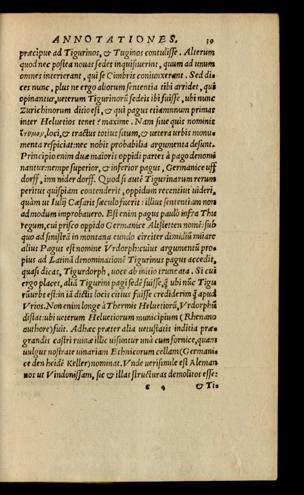 ANNOTATIONES. 19
præcipue ad Tigurinos, & Tuginos contulisse. Alterum
quod nec postea nouas sedes inquisiuerint, quum ad unum
omnes interierant, qui se Cimbris coniunxerant. Sed di=
ces nunc, plus ne ergo aliorum sententia tibi arridet, qui
opinantur, ueterum Tigurinorũ sedeis ibi fuisse, ubi nunc
Zurichinorum ditio est, & qui pagus etiamnum primas
inter Heluetios tenet? maxime. Nam siue quis nominis
loci, & tractus totius situm, & uetera urbis monu=
menta respiciat: nec nobis probabilia argumenta desunt.
Principio enim duæ maioris oppidi partes à pago denomi
nantur: nempe superior, & inferior pagus, Germanice uff
dorff, im nider dorff. Quod si autẽ Tigurinarum rerum
peritus quispiam contenderit, oppidum recentius uideri,
quàm ut Iulij Cæsaris sæculo fuerit: illius sententiam non
admodum improbauero. Est enim pagus paulò infra Thu
regum, cui prisco oppido Germanice Alstetten nomẽ: sub
quo ad sinistrã in montana eundo circiter dimidiũ milia=
re alius Pagus est nomine Vrdorph: cuius argumentũ pro=
pius ad Latinã denominationẽ Tigurinus pagus accedit,
quasi dicat, Tigurdorph, uoce ab initio truncata. Si cui
ergo placet, aliã Tigurini pagi sedẽ fuisse, quã ubi nũc Tigu
rũ urbs est: in iã dictis locis citius fuisse crediderim quã apud
Vrios. Non enim longe à Thermis Heluetiorũ, Vrdorphũ
distat: ubi ueterum Heluetiorum municipium (Rhenano
authore) fuit. Adhæc præter alia uetustatis inditia præ=
grandis castri ruinæ illic uisuntur unà cum fornice, quam
uulgus nostrate uinariam Ethnicorum cellam (Germani=
ce den heidẽ Keller) nominat. Vnde uerisimile est Aleman
nos ut Vindonissam, sic & illas structuras demolitos esse:
c 4 & Ti=